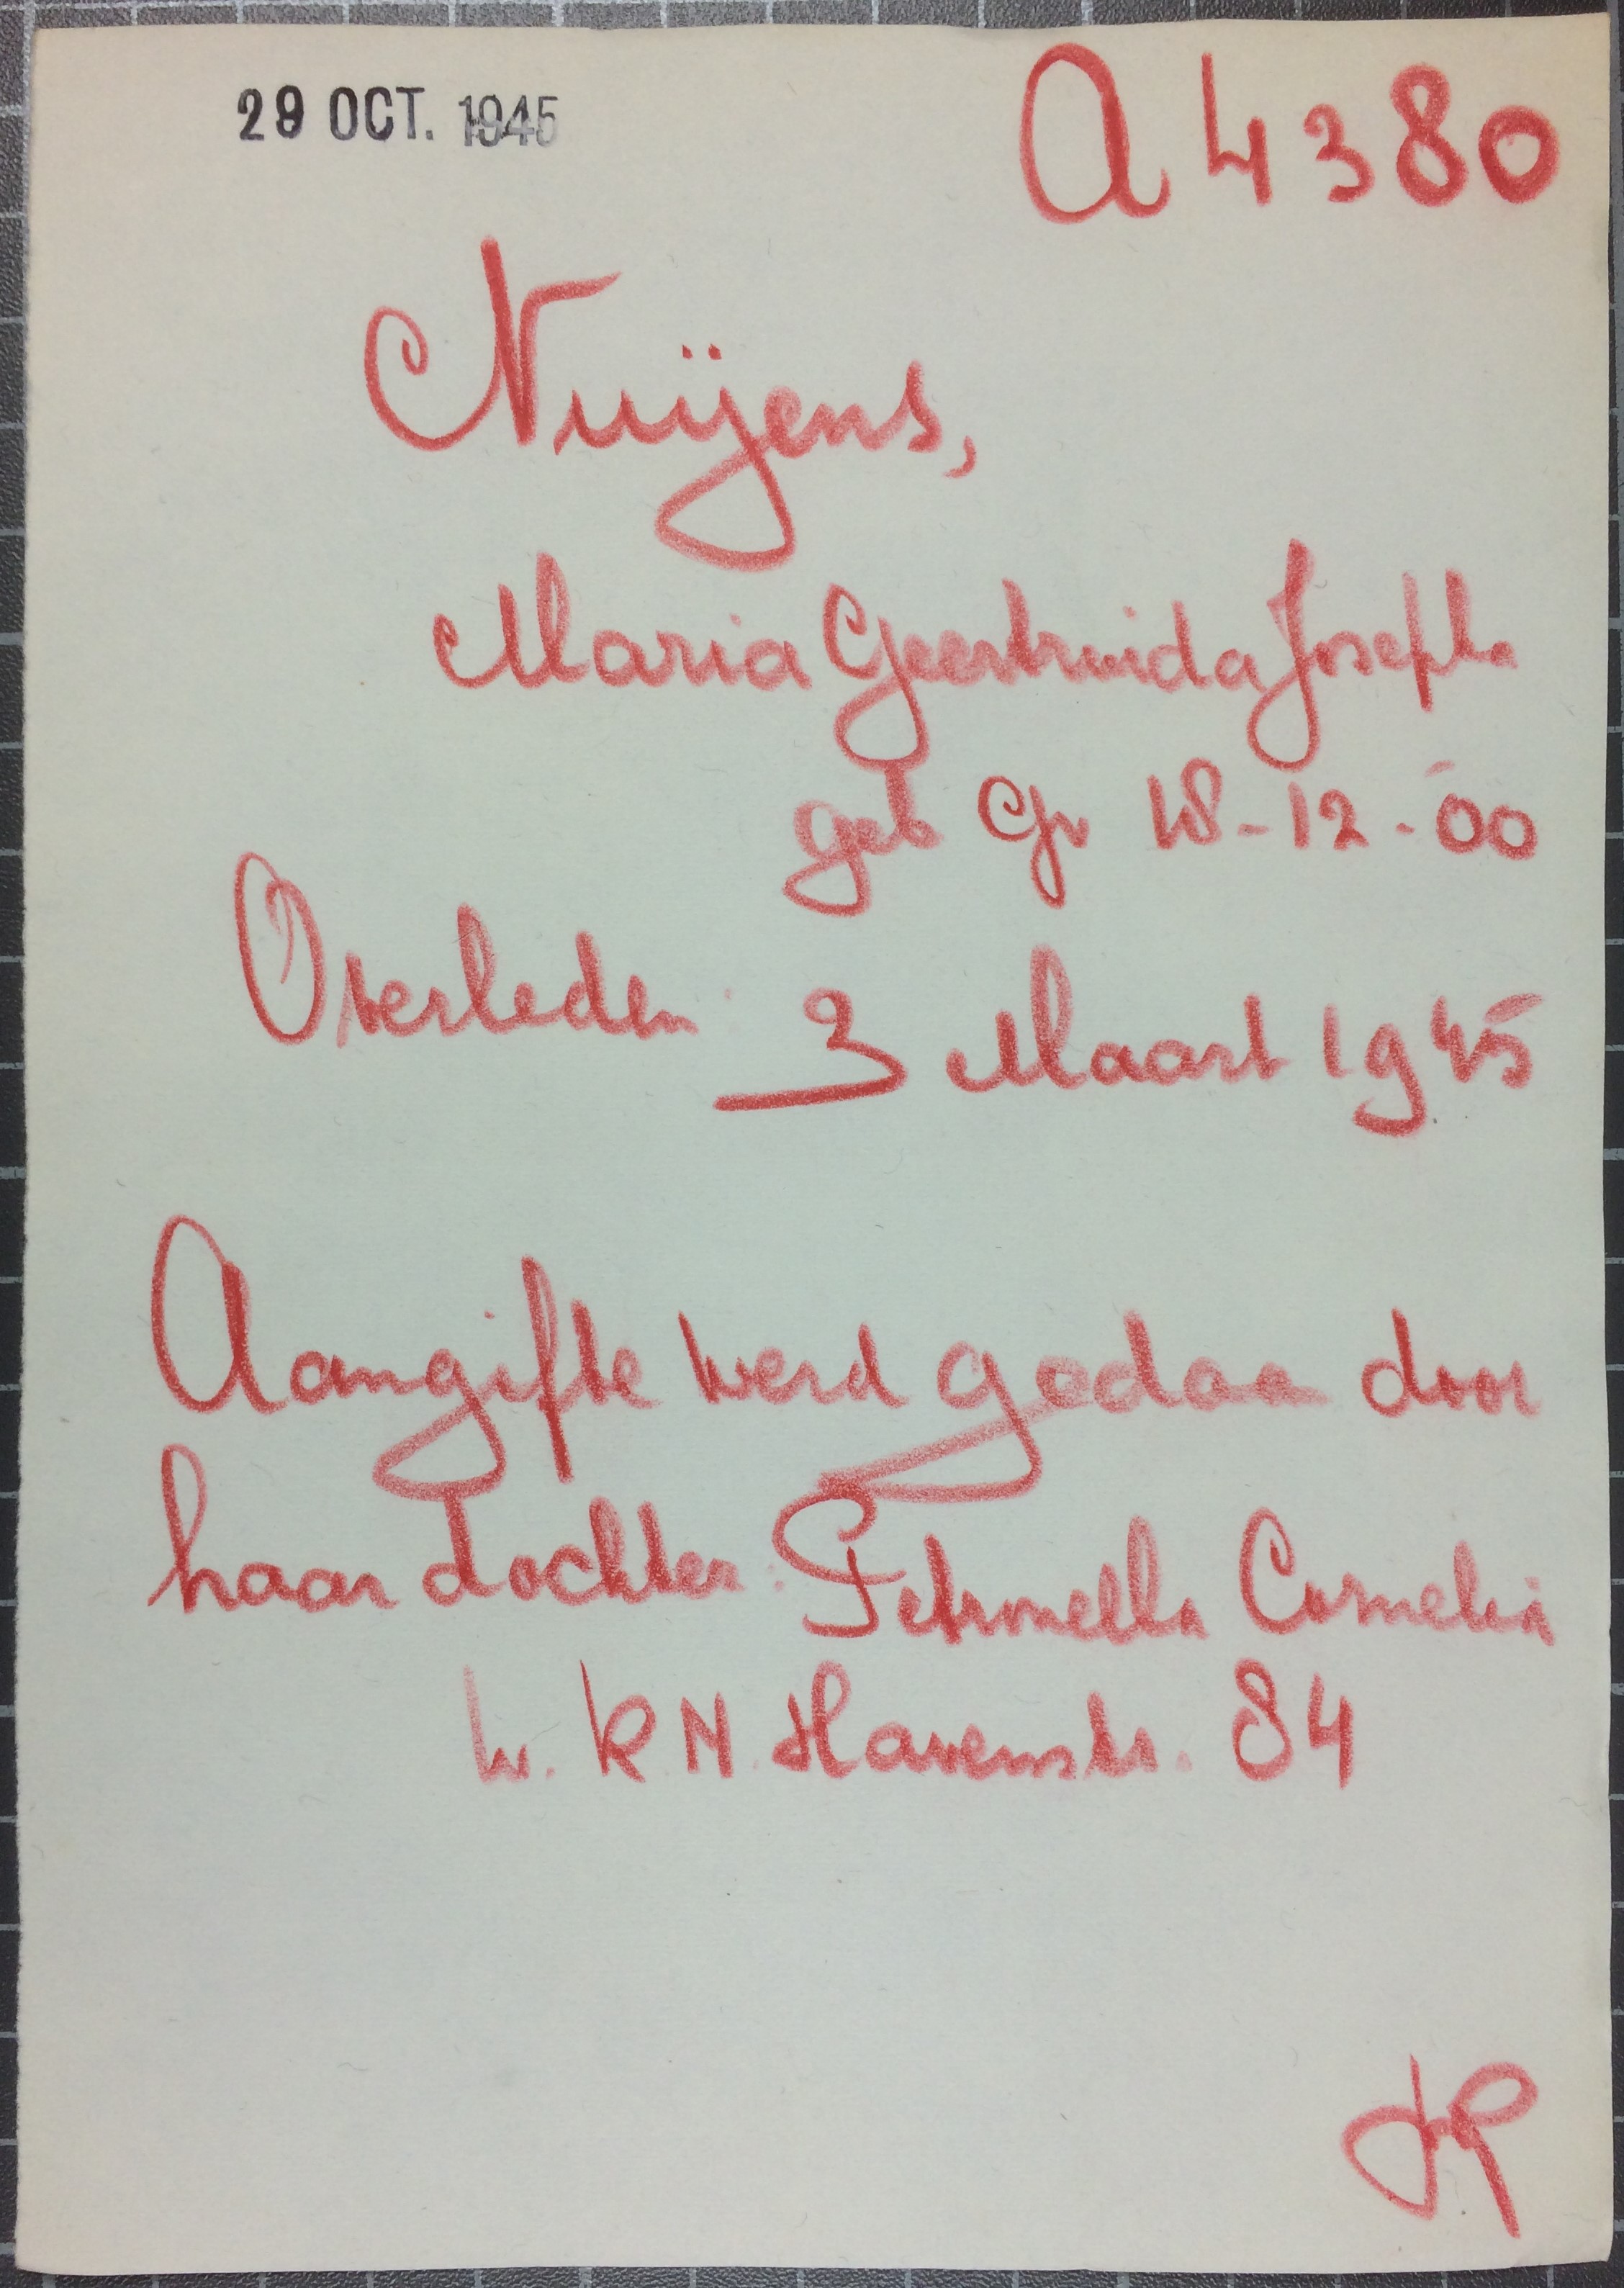 29 OCT. 1945
A 4380
Nuijens,
Maria Geertruida Josepha
geb Gr 18-12-00
Overleden 3 Maart 1945
Aangifte werd gedaan door
haar dochter: Petronella Cornelia
w. K.N. Havenstr. 84